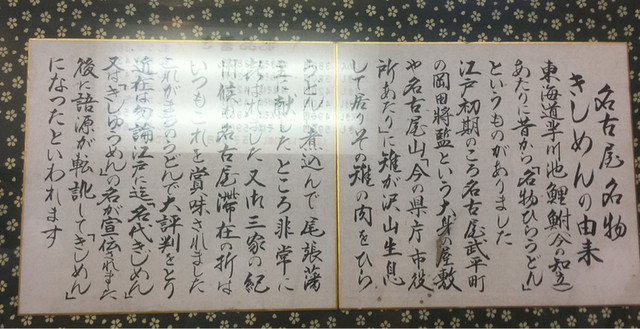 名古屋名物
きしめんの由来
東海道芋川池鯉鮒(今の知立)
あたりに昔から「名物ひらうどん」
というものがありました
江戸初期のころ名古屋武平町
の岡田將監という大身の屋敷
や名古屋山「今の県庁市役
所あたり」に雉が沢山生息
して居りその雉の肉をひら
うどんに煮込んで尾張藩
主に献したところ非常に
た又御三家の紀
州侯も名古屋滞在の折は
いつもこれを賞味されました
これがまちのうどんで大評判をとり
近在は勿論江戸に迄「名代きしめん」
又は「きしゅうめん」の名が宣伝されました
後に語源が転訛して「きしめん」
になったといわれます